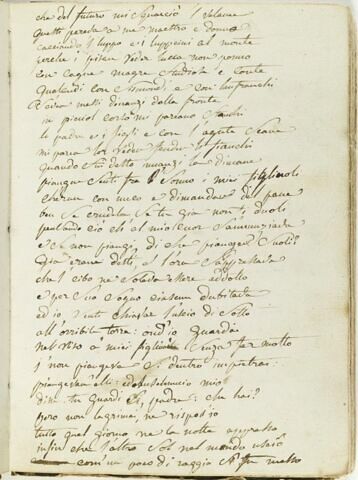 che del futuro mi squarciò 'l velame
Questi pareva a me maestro e donno
cacciando 'l lupo e i lupicini al monte
perche i Pisan veder Lucca non ponno
Con cagne magre studiose e conte
Gualandi con Sismondi e con Lanfranchi
s'avea messi dinanzi dalla fronte
in picciol corso mi pariano stanchi
lo padre e i figli e con l'agute scane
mi parea lor veder fender li fianchi
Quando fui desto innanzi la dimane
pianger senti' fra 'l sonno i miei figliuoli
ch'eran con meco e dimandar del pane
ben se' crudel se tu già non ti duoli
pensando ciò ch'al mio cuor s'annunziava
e se non piangi, di che pianger suoli?
Già eran desti, e l'ora s'appressava
che 'l cibo ne soleva essere addotto
e per suo sogno ciascun dubitava
ed io senti' chiavar l'uscio di sotto
all'orribile torre: ond'io guardai
nel viso a' miei figliuoi senza far motto
I' non piangeva sì dentro impetrai:
piangevan elli: ed Anselmuccio mio
disse: tu guardi sì, padre: che hai?
però non lagrimai, ne risposi io
tutto quel giorno ne la notte appresso
infin che l'altro sol nel mondo uscio
com' un poco di raggio si fu messo